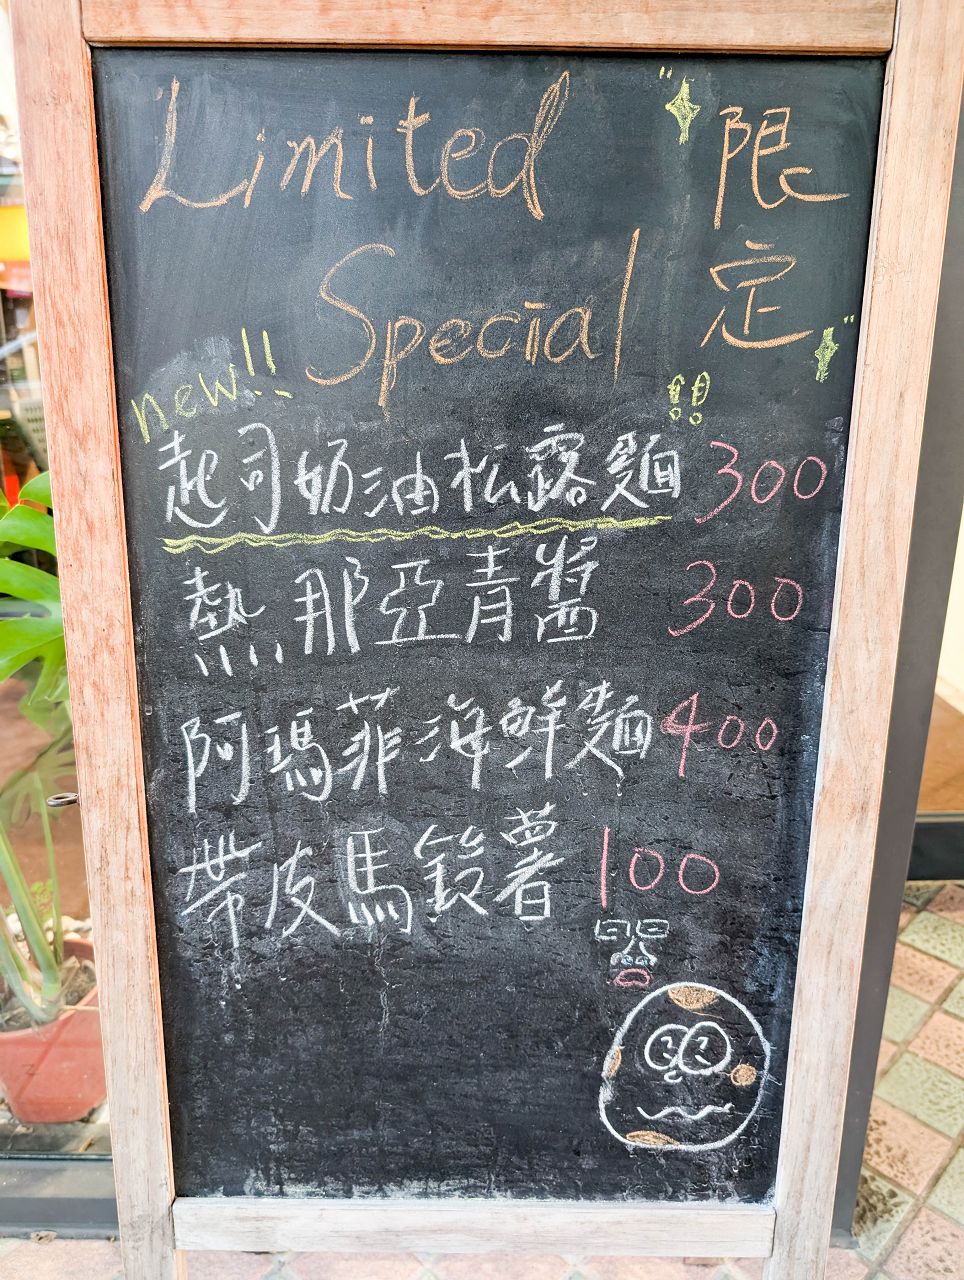 Limited
Special
限定
new!!
!!
起司奶油松露麵 300
熱那亞青醬 300
阿瑪菲海鮮麵 400
帶皮馬鈴薯 100